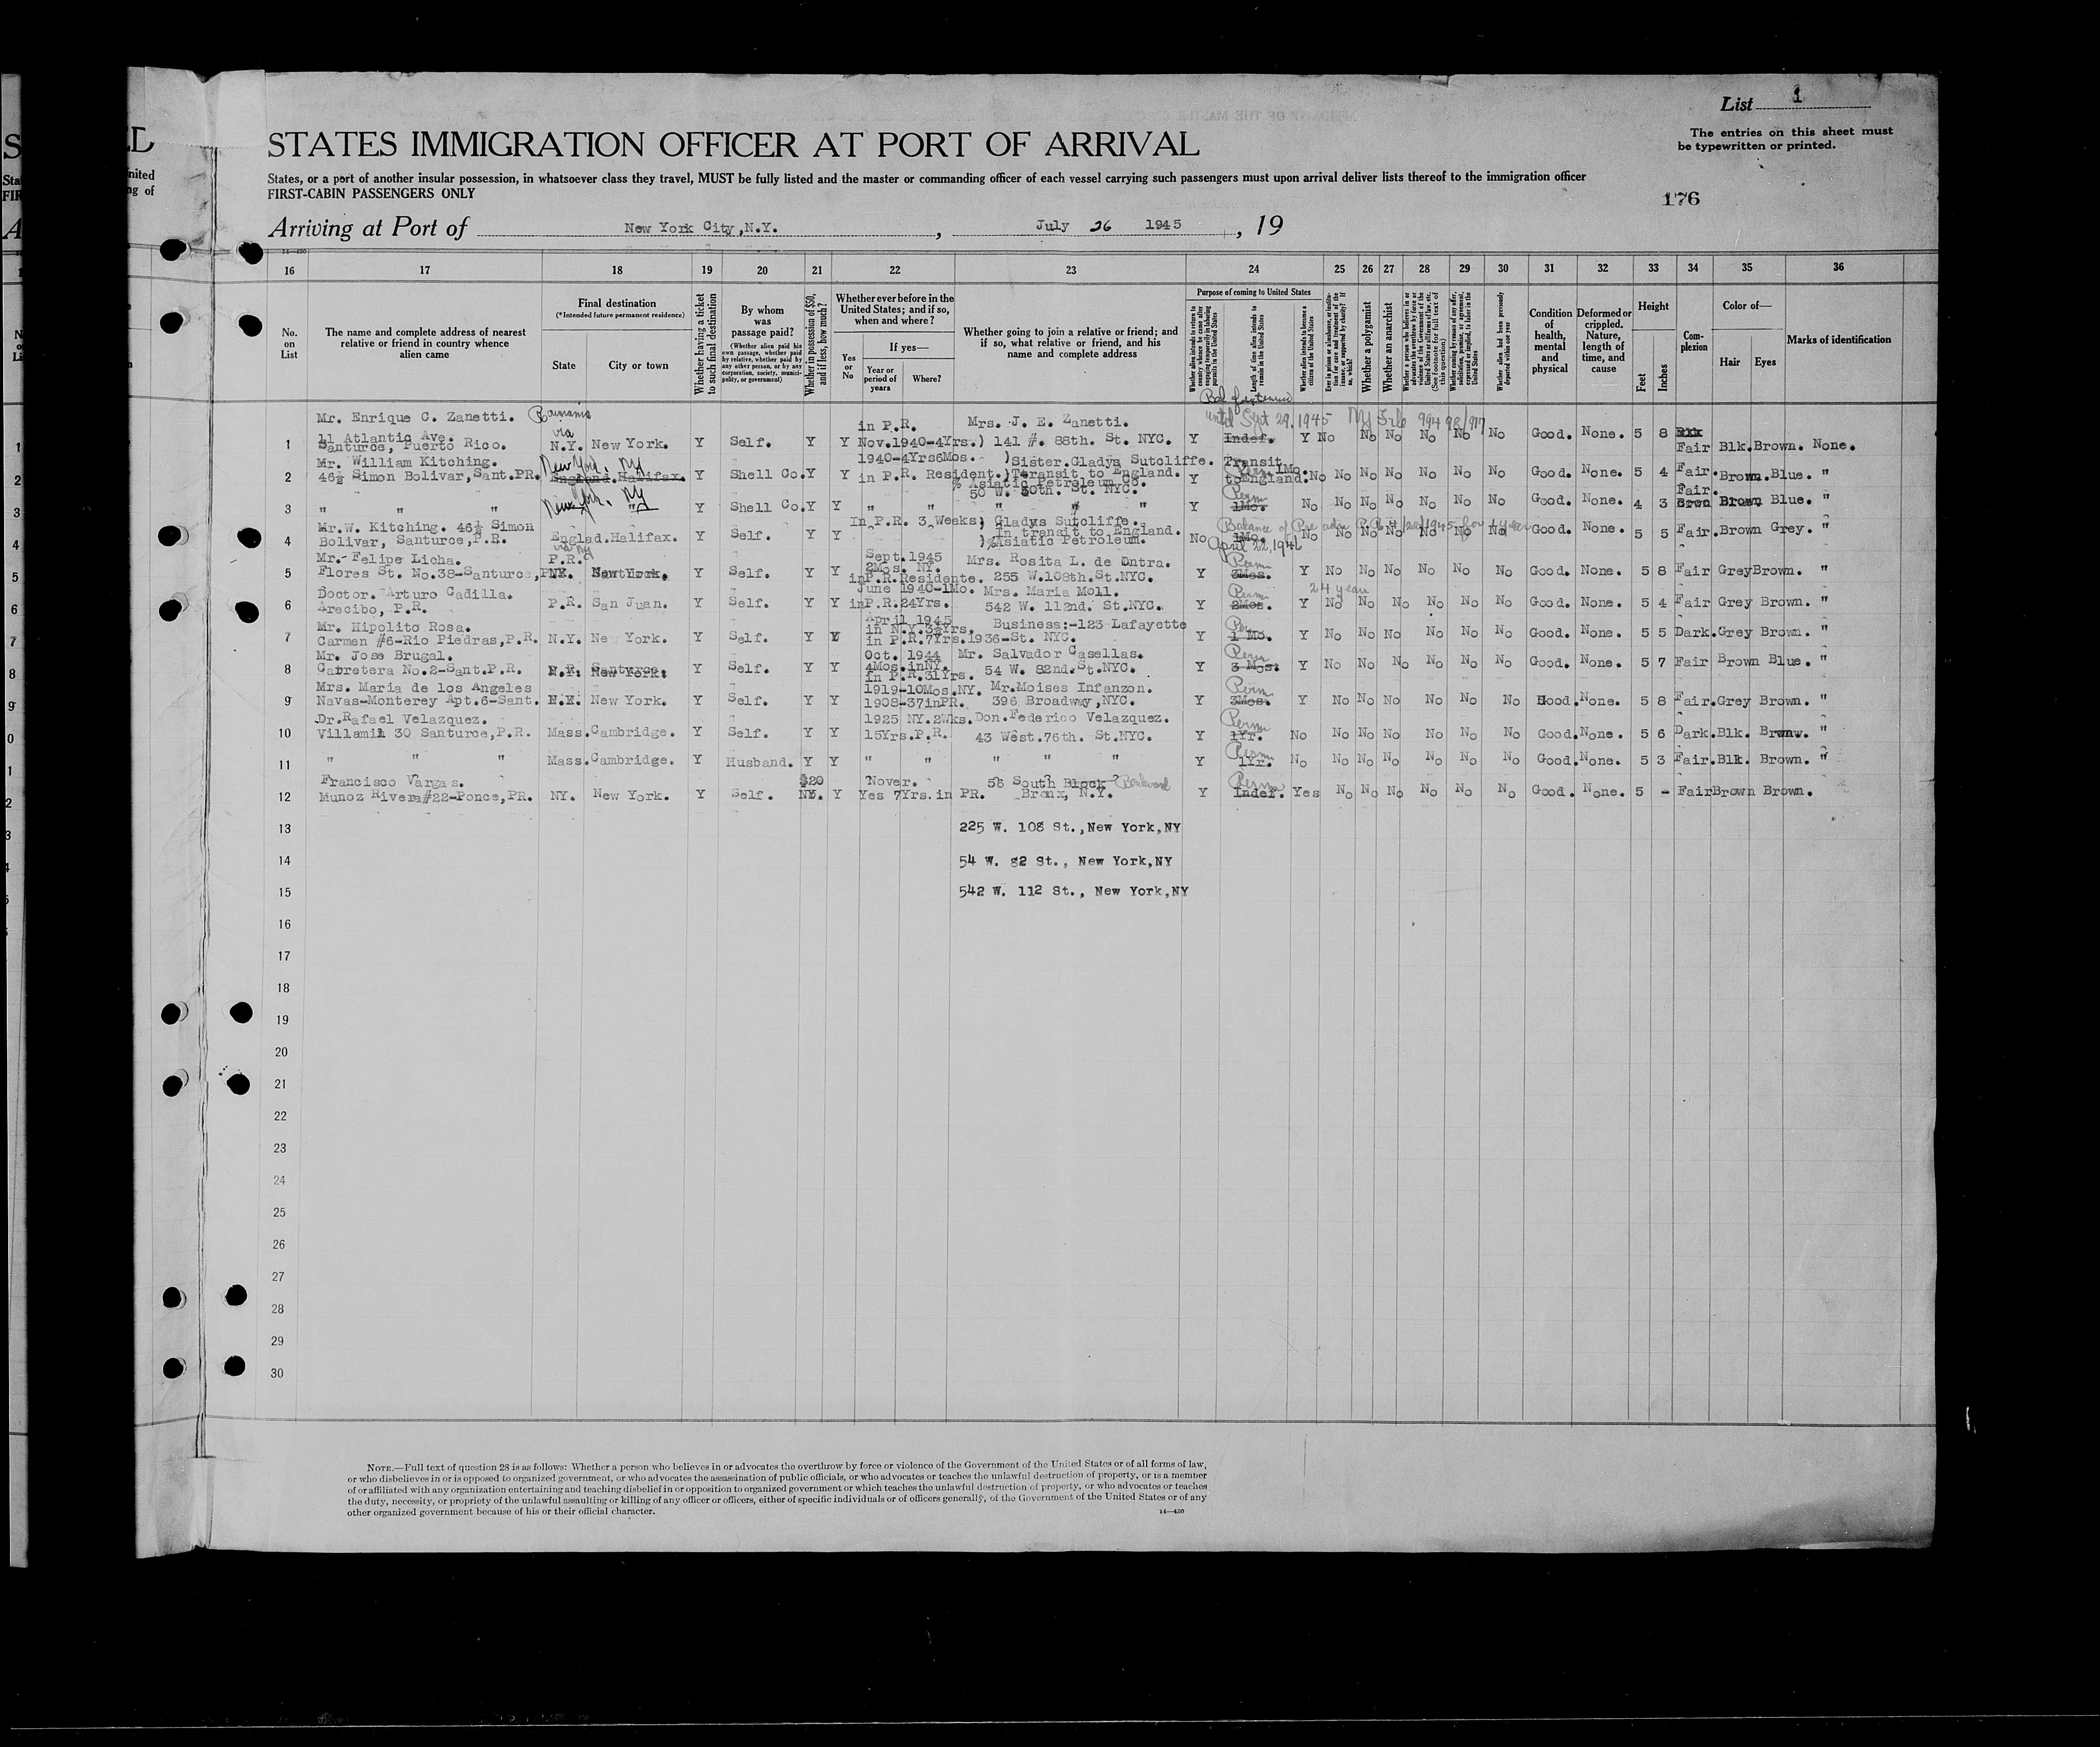 List 1
The entries on this sheet must
be typewritten or printed.
STATES IMMIGRATION OFFICER AT PORT OF ARRIVAL
States, or a port of another insular possession, in whatsoever class they travel, MUST be fully listed and the master or commanding officer of each vessel carrying such passengers must upon arrival deliver lists thereof to the immigration officer
FIRST-CABIN PASSENGERS ONLY
176
Arriving at Port of New York City, N.Y. , July 26 1945 , 19
16 17 18 19 20 21 22 23 24 25 26 27 28 29 30 31 32 33 34 35 36
No. on List
The name and complete address of nearest relative or friend in country whence alien came
Final destination
(*Intended future permanent residence)
State
City or town
Whether having a ticket to such final destination
By whom was passage paid?
(Whether alien paid his own passage, whether paid by relative, whether paid by any other person, or by any corporation, society, municipality, or government)
Whether in possession of $50, and if less, how much?
Whether ever before in the United States; and if so, when and where?
Yes or No
If yes—
Year or period of years
Where?
Whether going to join a relative or friend; and if so, what relative or friend, and his name and complete address
Purpose of coming to United States
Whether alien intends to return to country whence he came after engaging temporarily in laboring pursuits in the United States
Length of time alien intends to remain in the United States
Whether alien intends to become a citizen of the United States
Whether a polygamist
Whether an anarchist
Whether alien had been previously deported within one year
Condition of health, mental and physical
Deformed or crippled. Nature, length of time, and cause
Height
Feet
Inches
Complexion
Color of—
Hair
Eyes
Marks of identification
Mr. Enrique C. Zanetti. in P.R. Mrs. J. E. Zanetti. until Sept 29, 1945
11 Atlantic Ave. via
1 Santurce, Puerto Rico. N.Y. New York. Y Self. Y Y Nov.1940-4Yrs.) 141 #. 88th. St. NYC. Y Indef. Y No No No No No No Good. None. 5 8 Fair Blk.Brown. None.
Mr. William Kitching. New York, NY 1940-4Yrs6Mos. )Sister.Gladys Sutcliffe. Transit
2 46½ Simon Bolivar, Sant.PR. England.Halifax. Y Shell Co. Y Y in P.R. Resident.)Transit to England. Y 1Mo. to England. No No No No No No No Good. None. 5 4 Fair. Brown.Blue. "
% Asiatic Petroleum Co.
50 W. 50th. St. NYC.
3 " " " New York, NY " Y Shell Co. Y Y " " " " " Y Perm 1Mo. No No No No No No No Good. None. 4 3 Fair. Brown Blue. "
Mr.W. Kitching. 46½ Simon In P.R. 3 Weeks) Gladys Sutcliffe.
4 Bolivar, Santurce,P.R. Englad.Halifax. Y Self. Y Y In transit to England. )%Asiatic Petroleum. No 1Mo. April 22, 1946 No No No No No No No Good. None. 5 5 Fair.Brown Grey. "
Mr. Felipe Licha. via NY P.R. Sept.1945 2Mos. NY. Mrs. Rosita L. de Ontra.
5 Flores St. No.38-Santurce,PR. Santurce. Y Self. Y Y inP.R.Residente. 255 W.108th.St.NYC. Y Perm 3Mos. Y No No No No No No Good. None. 5 8 Fair GreyBrown. "
Doctor. Arturo Cadilla. June 1940-1Mo. Mrs. Maria Moll. 24 years
6 Arecibo, P.R. P.R. San Juan. Y Self. Y Y inP.R.24Yrs. 542 W. 112nd. St.NYC. Y Perm 2Mos. Y No No No No No No Good. None. 5 4 Fair Grey Brown. "
Mr. Hipolito Rosa. April 1945 in N.Y.3½Yrs. Business:-123 Lafayette
7 Carmen #6-Rio Piedras,P.R. N.Y. New York. Y Self. Y Y in P.R.7Yrs.1936-St. NYC. Y Per 1 Mo. Y No No No No No No Good. None. 5 5 Dark.Grey Brown. "
Mr. Jose Brugal. Oct. 1944 Mr. Salvador Casellas.
8 Carretera No.2-Sant.P.R. New York. Y Self. Y Y 4Mos.inNY. 54 W. 82nd.St.NYC. Y Perm 3 Mos. Y No No No No No No Good. None. 5 7 Fair Brown Blue. "
in P.R.31Yrs.
Mrs. Maria de los Angeles 1919-10Mos.NY. Mr.Moises Infanzon.
9 Navas-Monterey Apt.6-Sant. N.Y. New York. Y Self. Y Y 1908-37inPR. 396 Broadway,NYC. Y Perm 3Mos. Y No No No No No No Good.None. 5 8 Fair.Grey Brown. "
Dr.Rafael Velazquez. 1925 NY.2Wks. Don.Federico Velazquez.
10 Villamil 30 Santurce,P.R. Mass.Cambridge. Y Self. Y Y 15Yrs.P.R. 43 West.76th. St.NYC. Y Perm 1Yr. No No No No No No No Good.None. 5 6 Dark.Blk. Brown. "
11 " " Mass.Cambridge. Y Husband. Y Y " " " " " Y Perm 1Yr. No No No No No No No Good.None. 5 3 Fair.Blk. Brown. "
Francisco Vargas. $20 Never. 58 South Block Boulevard
12 Munoz Rivera#22-Ponce,PR. NY. New York. Y Self. NY. Y Yes 7Yrs.in PR. Bronx, N.Y. Y Perm Indef. Yes No No No No No No Good. None. 5 - FairBrown Brown.
13 225 W. 108 St.,New York,NY
14 54 W. 82 St., New York,NY
15 542 W. 112 St., New York,NY
16
17
18
19
20
21
22
23
24
25
26
27
28
29
30
NOTE.—Full text of question 28 is as follows: Whether a person who believes in or advocates the overthrow by force or violence of the Government of the United States or of all forms of law,
or who disbelieves in or is opposed to organized government, or who advocates the assassination of public officials, or who advocates or teaches the unlawful destruction of property, or is a member
of or affiliated with any organization entertaining and teaching disbelief in or opposition to organized government or which teaches the unlawful destruction of property, or who advocates or teaches
the duty, necessity, or propriety of the unlawful assaulting or killing of any officer or officers, either of specific individuals or of officers generally, of the Government of the United States or of any
other organized government because of his or their official character.
14—430